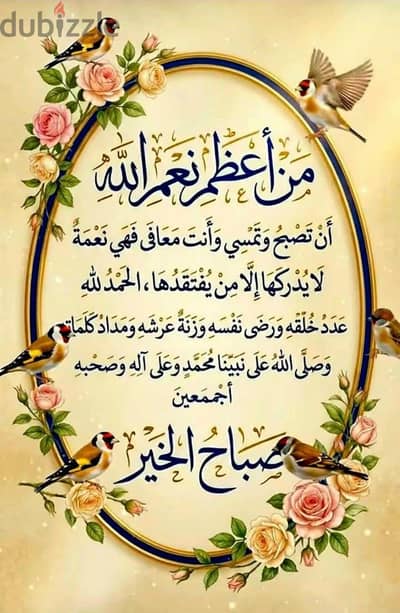 dubizzle
مِنْ أَعْظَمِ نِعَمِ اللَّهِ
أَنْ تَصْبِحُ وَتَمْسِي وَأَنتَ مَعَافَى فَهِي نَعْمَةٌ
لَا يُدْرِكَهَا إِلَّا مِنْ يُفْتَقَدُهَا، الحَمْدُ لِلهِ
عَدَدْ خُلْقِهِ وَرَضَى نَفْسَهِ وَزَنَةُ عَرْشَهِ وَمَدَادُ كَلَمَاتِهِ
وَصَلَّى اللهُ عَلَى نَبِيِّنَا مُحَمَّدٍ وَعَلَى آلِهِ وَصَحْبِهِ
أجْممَعينَ
صَبَاحُ الخَيْر